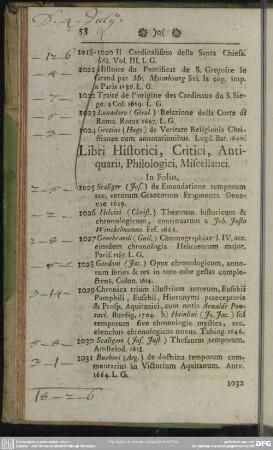 58
1018-1020 Il Cardinalismo della Santa Chiesa.
668. Vol. III. L. G.
1021 Histoire du Pontificat de S. Gregoire le
Grand par Mr. Maimbourg Svl. la cop. imp.
a Paris 1686. L. G.
1022 Traité de l'origine des Cardinaux du S. Sie-
ge. a Col. 1669. L. G.
1023 Lunadoro (Girol.) Relazione della Corte di
Roma. Roma 1697. L. G.
1024 Grotius (Hugo) de Veritate Religionis Chri-
stianae cum annotationibus. Lugd. Bat. 1640.
Libri Historici, Critici, Anti-
quarii, Philologici, Miscellanei.
In Folio,
1025 Scaliger (Jos.) de Emendatione temporum
acc. veterum Graecorum Fragmenta. Gene-
vae 1629.
1026 Helvici (Christ.) Theatrum historicum &
chronologicum, continuatum a Joh. Justo
Winckelmanno. Fef. 1666.
1027 Genebrardi (Guil.) Chronographiae l. IV. acc.
ejusdem chronologia Hebraeorum major.
Paris. 1585 L. G.
1028 Gordoni (Jac.) Opus chronologicum, anno-
rum series & res in toto orbe gestas comple-
ctens. Colon. 1614.
1029 Chronica trium illustrium autorum, Eusebii
Pamphili, Eusebii, Hieronymi praeceptoris
& Prosp. Aquitanici, cum notis Arnaldi Pon-
taci. Burdig. 1704. b) Hainlini (Jo. Jac.) sol
temporum sive chronologia mystica, acc.
elenchus chronologicus novus. Tubing 1646.
1030 Scaligeri (Jos. Just.) Thesaurus temporum.
Amstelod. 1658.
1031 Bucheri (Aeg.) de doctrina temporum com-
mentarius in Victorium Aquitanum. Antv.
1664. L. G.
1032
18 - 2 - 6